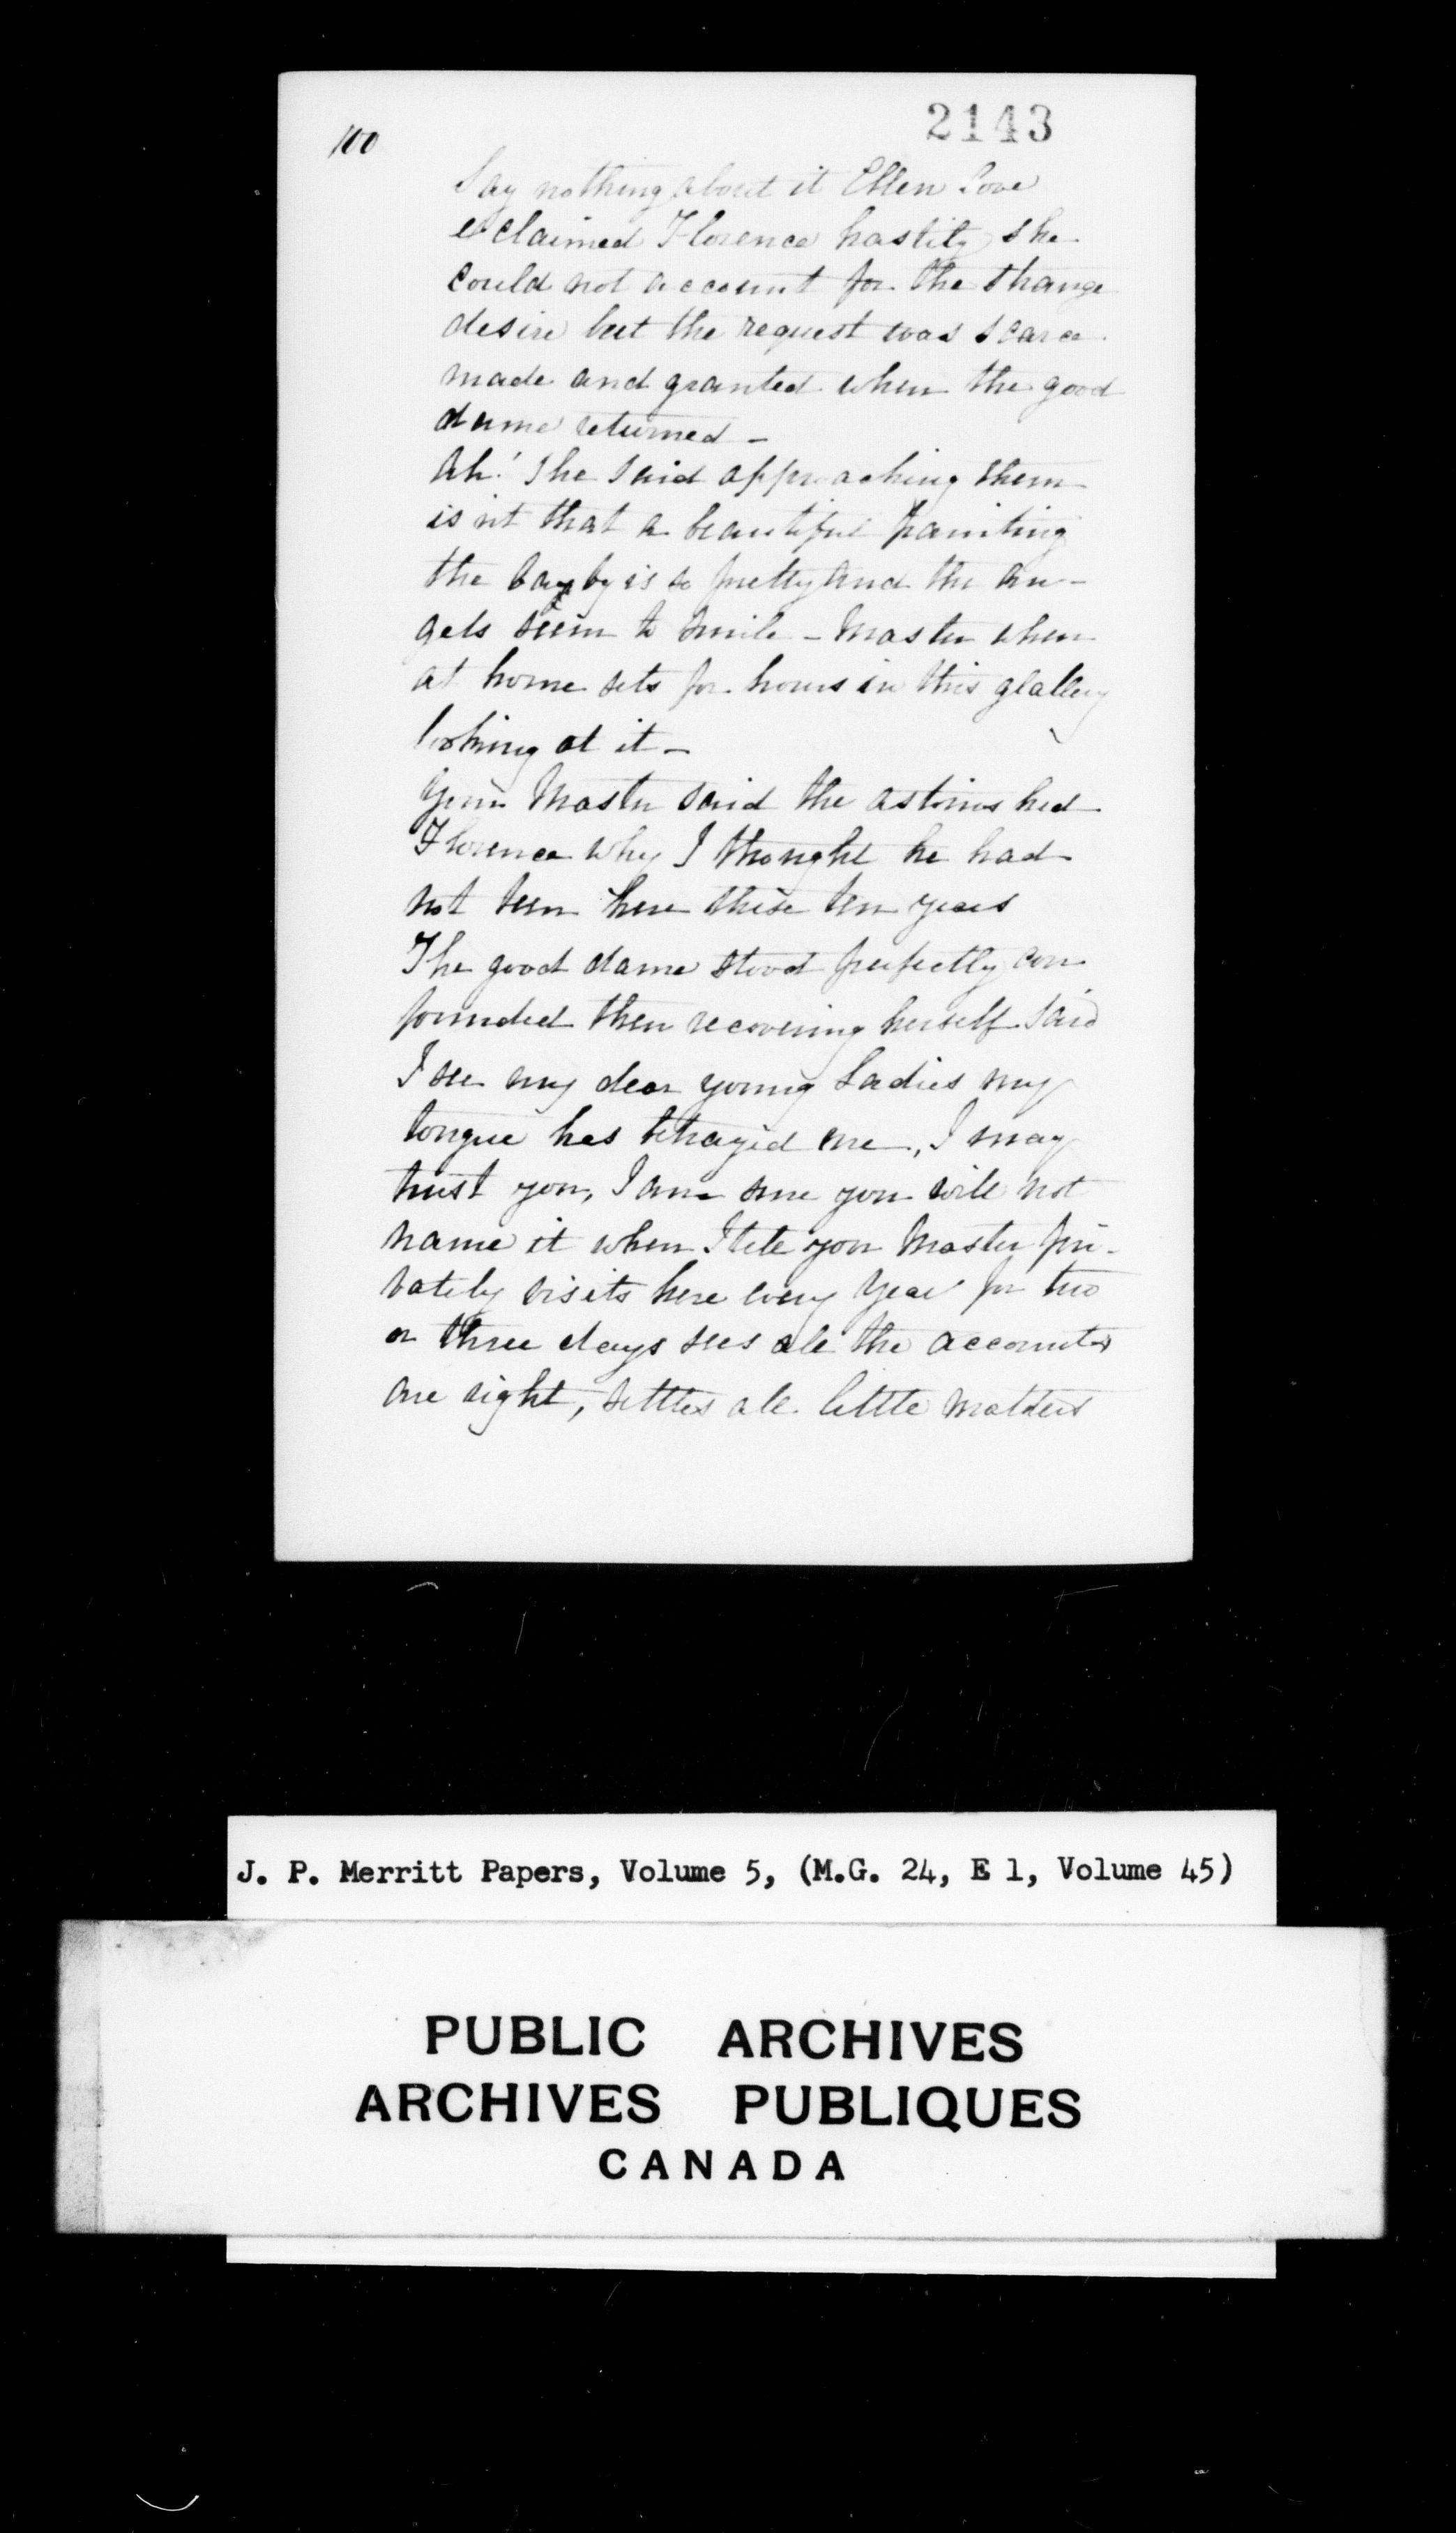 2143
100
Say nothing about it Ellen Love
exclaimed Florence hastily she
could not account for the strange
desire but the request was scarce
made and granted when the good
dame returned -
Ah! She said approaching them
is nt that a beautiful painting
the bayby is so pretty and the an-
gels seem to smile - Master when
at home sets for hours in this glallery
looking at it -
Your Master said the astonished
Florence why I thought he had
not been here these ten years
The good dame stood perfectly con
founded then recovering herself said
I see my dear young Ladies my
tongue has betrayed me, I may
trust you, I am sure you will not
name it when I tell you Master pri-
vately visits here every year for two
or three days sees all the accounts
are right, settles all little matters
J. P. Merritt Papers, Volume 5, (M.G. 24, E 1, Volume 45)
PUBLIC ARCHIVES
ARCHIVES PUBLIQUES
CANADA